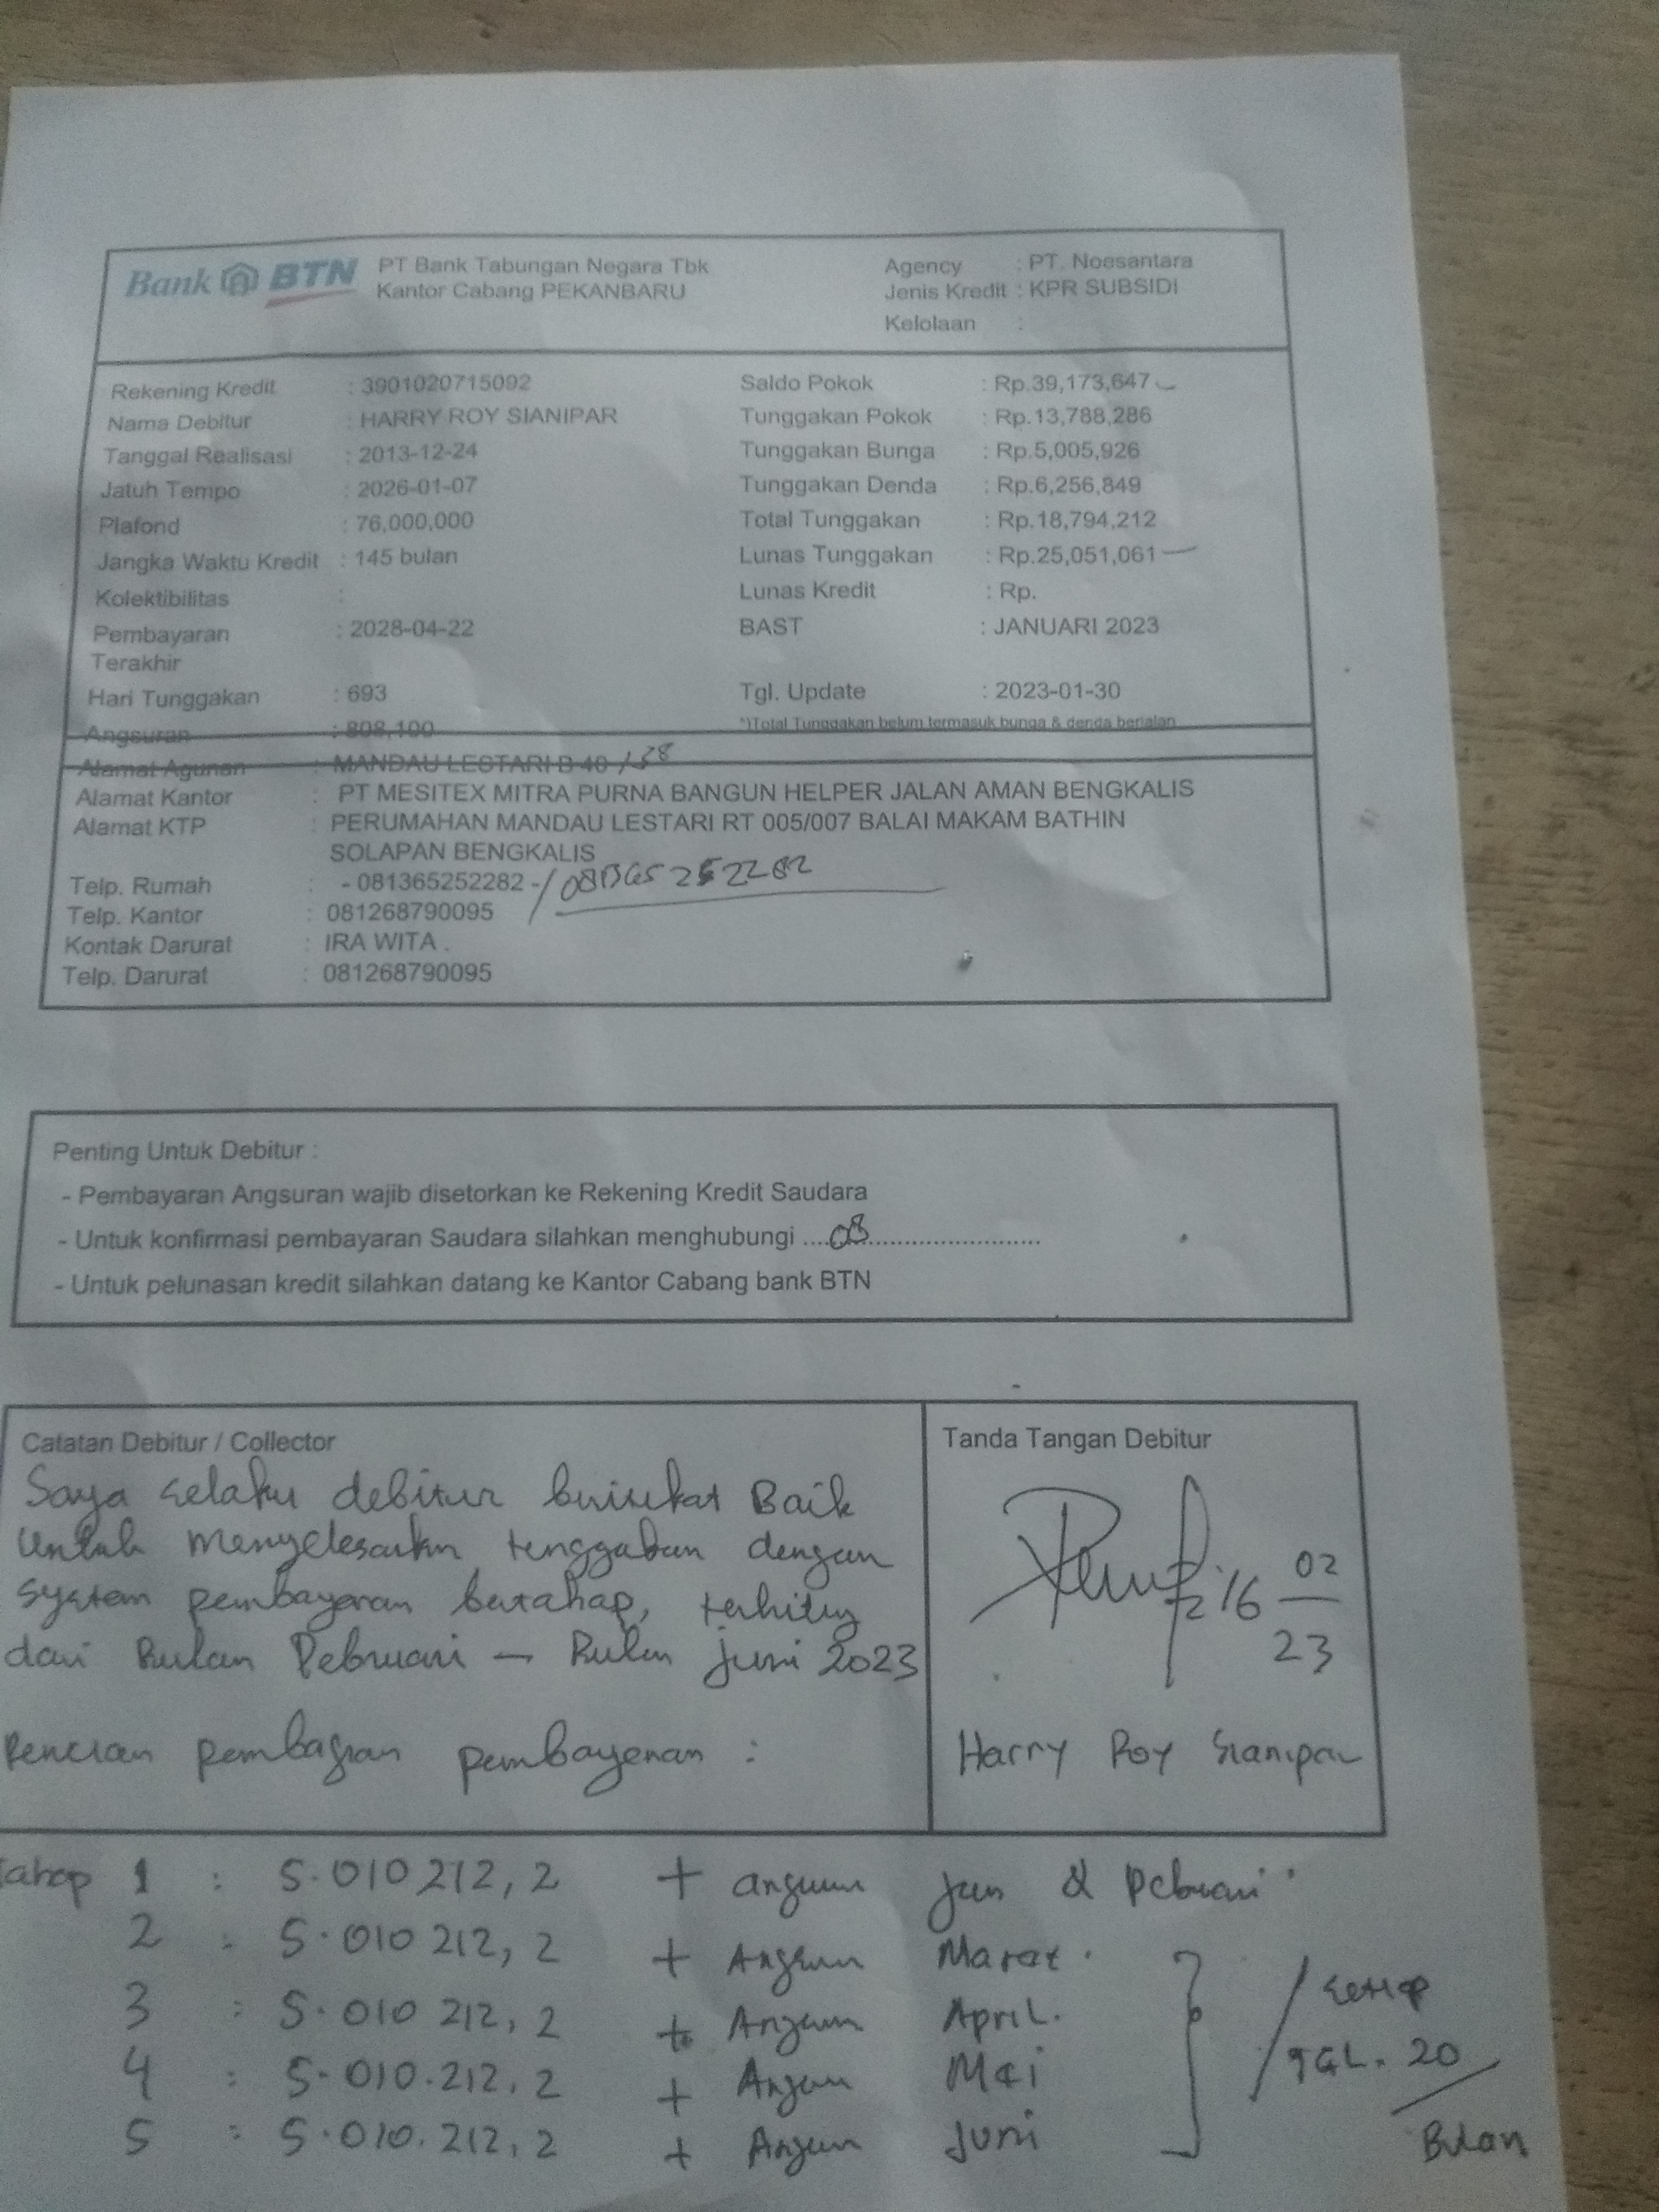 Bank BTN PT Bank Tabungan Negara Tbk
Kantor Cabang PEKANBARU
Agency : PT. Noesantara
Jenis Kredit : KPR SUBSIDI
Kelolaan :
Rekening Kredit : 3901020715092
Nama Debitur : HARRY ROY SIANIPAR
Tanggal Realisasi : 2013-12-24
Jatuh Tempo : 2026-01-07
Plafond : 76,000,000
Jangka Waktu Kredit : 145 bulan
Kolektibilitas :
Pembayaran : 2028-04-22
Terakhir
Hari Tunggakan : 693
Angsuran : 808,100
Saldo Pokok : Rp.39,173,647
Tunggakan Pokok : Rp.13,788,286
Tunggakan Bunga : Rp.5,005,926
Tunggakan Denda : Rp.6,256,849
Total Tunggakan : Rp.18,794,212
Lunas Tunggakan : Rp.25,051,061
Lunas Kredit : Rp.
BAST : JANUARI 2023
Tgl. Update : 2023-01-30
*)Total Tunggakan belum termasuk bunga & denda berjalan
Alamat Agunan : MANDAU LESTARI B 40 /
Alamat Kantor : PT MESITEX MITRA PURNA BANGUN HELPER JALAN AMAN BENGKALIS
Alamat KTP : PERUMAHAN MANDAU LESTARI RT 005/007 BALAI MAKAM BATHIN
SOLAPAN BENGKALIS
Telp. Rumah : - 081365252282 - /
Telp. Kantor : 081268790095
Kontak Darurat : IRA WITA .
Telp. Darurat : 081268790095
Penting Untuk Debitur :
- Pembayaran Angsuran wajib disetorkan ke Rekening Kredit Saudara
- Untuk konfirmasi pembayaran Saudara silahkan menghubungi ....08..........................
- Untuk pelunasan kredit silahkan datang ke Kantor Cabang bank BTN
Catatan Debitur / Collector
Saya selaku debitur Baik
untuk menyelesaikan tunggakan dengan
system pembayaran bertahap, terhitung
dari Bulan Pebruari - Bulan Juni 2023
Rencian pembagian pembayaran :
Tanda Tangan Debitur
16 02
23
Harry Roy Sianipar
Tahap 1 : 5.010 212, 2 + angsuran Jan & Pebruari
2 : 5.010 212, 2 + Angsuran Maret.
3 : 5.010 212, 2 + Angsuran April.
4 : 5.010.212, 2 + Angsuran Mei
5 : 5.010.212, 2 + Angsuran Juni
/ setiap
TGL. 20 /
Bulan